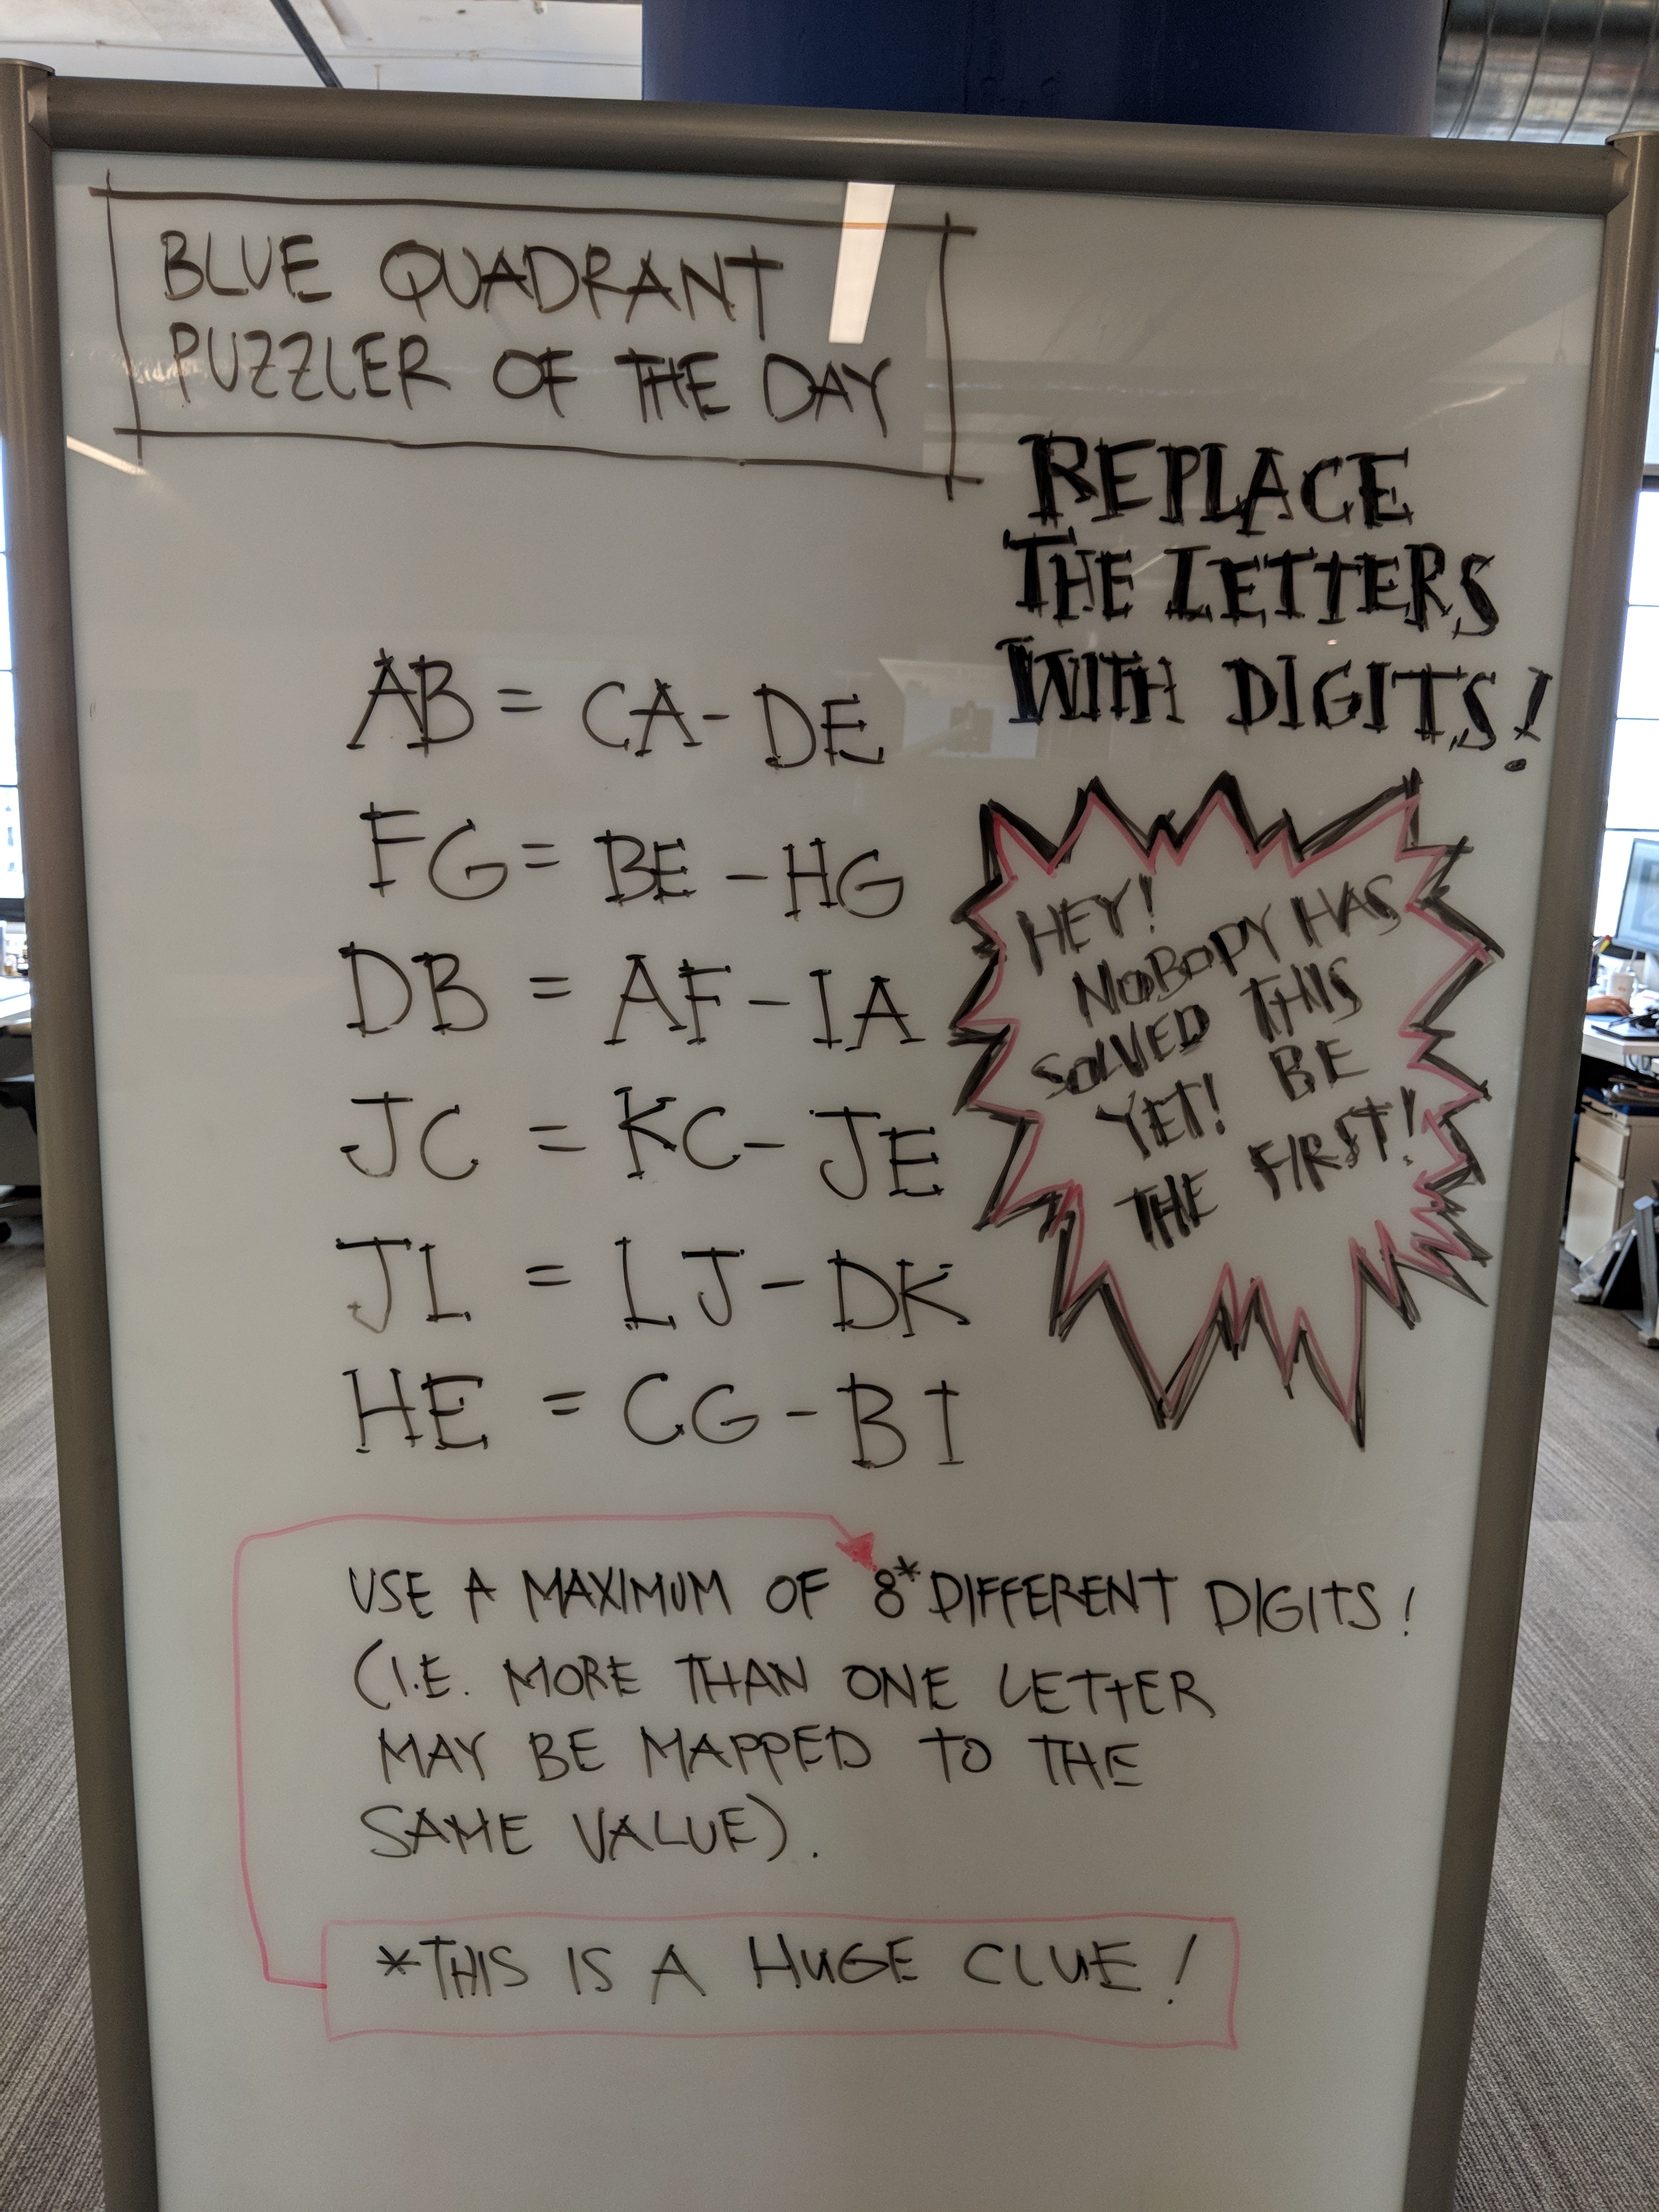 BLUE QUADRANT
PUZZLER OF THE DAY
REPLACE
THE LETTERS
WITH DIGITS!
AB = CA - DE
FG = BE - HG
DB = AF - IA
JC = KC - JE
JL = LJ - DK
HE = CG - BI
HEY!
NOBODY HAS
SOLVED THIS
YET! BE
THE FIRST!
USE A MAXIMUM OF 8* DIFFERENT DIGITS!
(I.E. MORE THAN ONE LETTER
MAY BE MAPPED TO THE
SAME VALUE).
*THIS IS A HUGE CLUE!